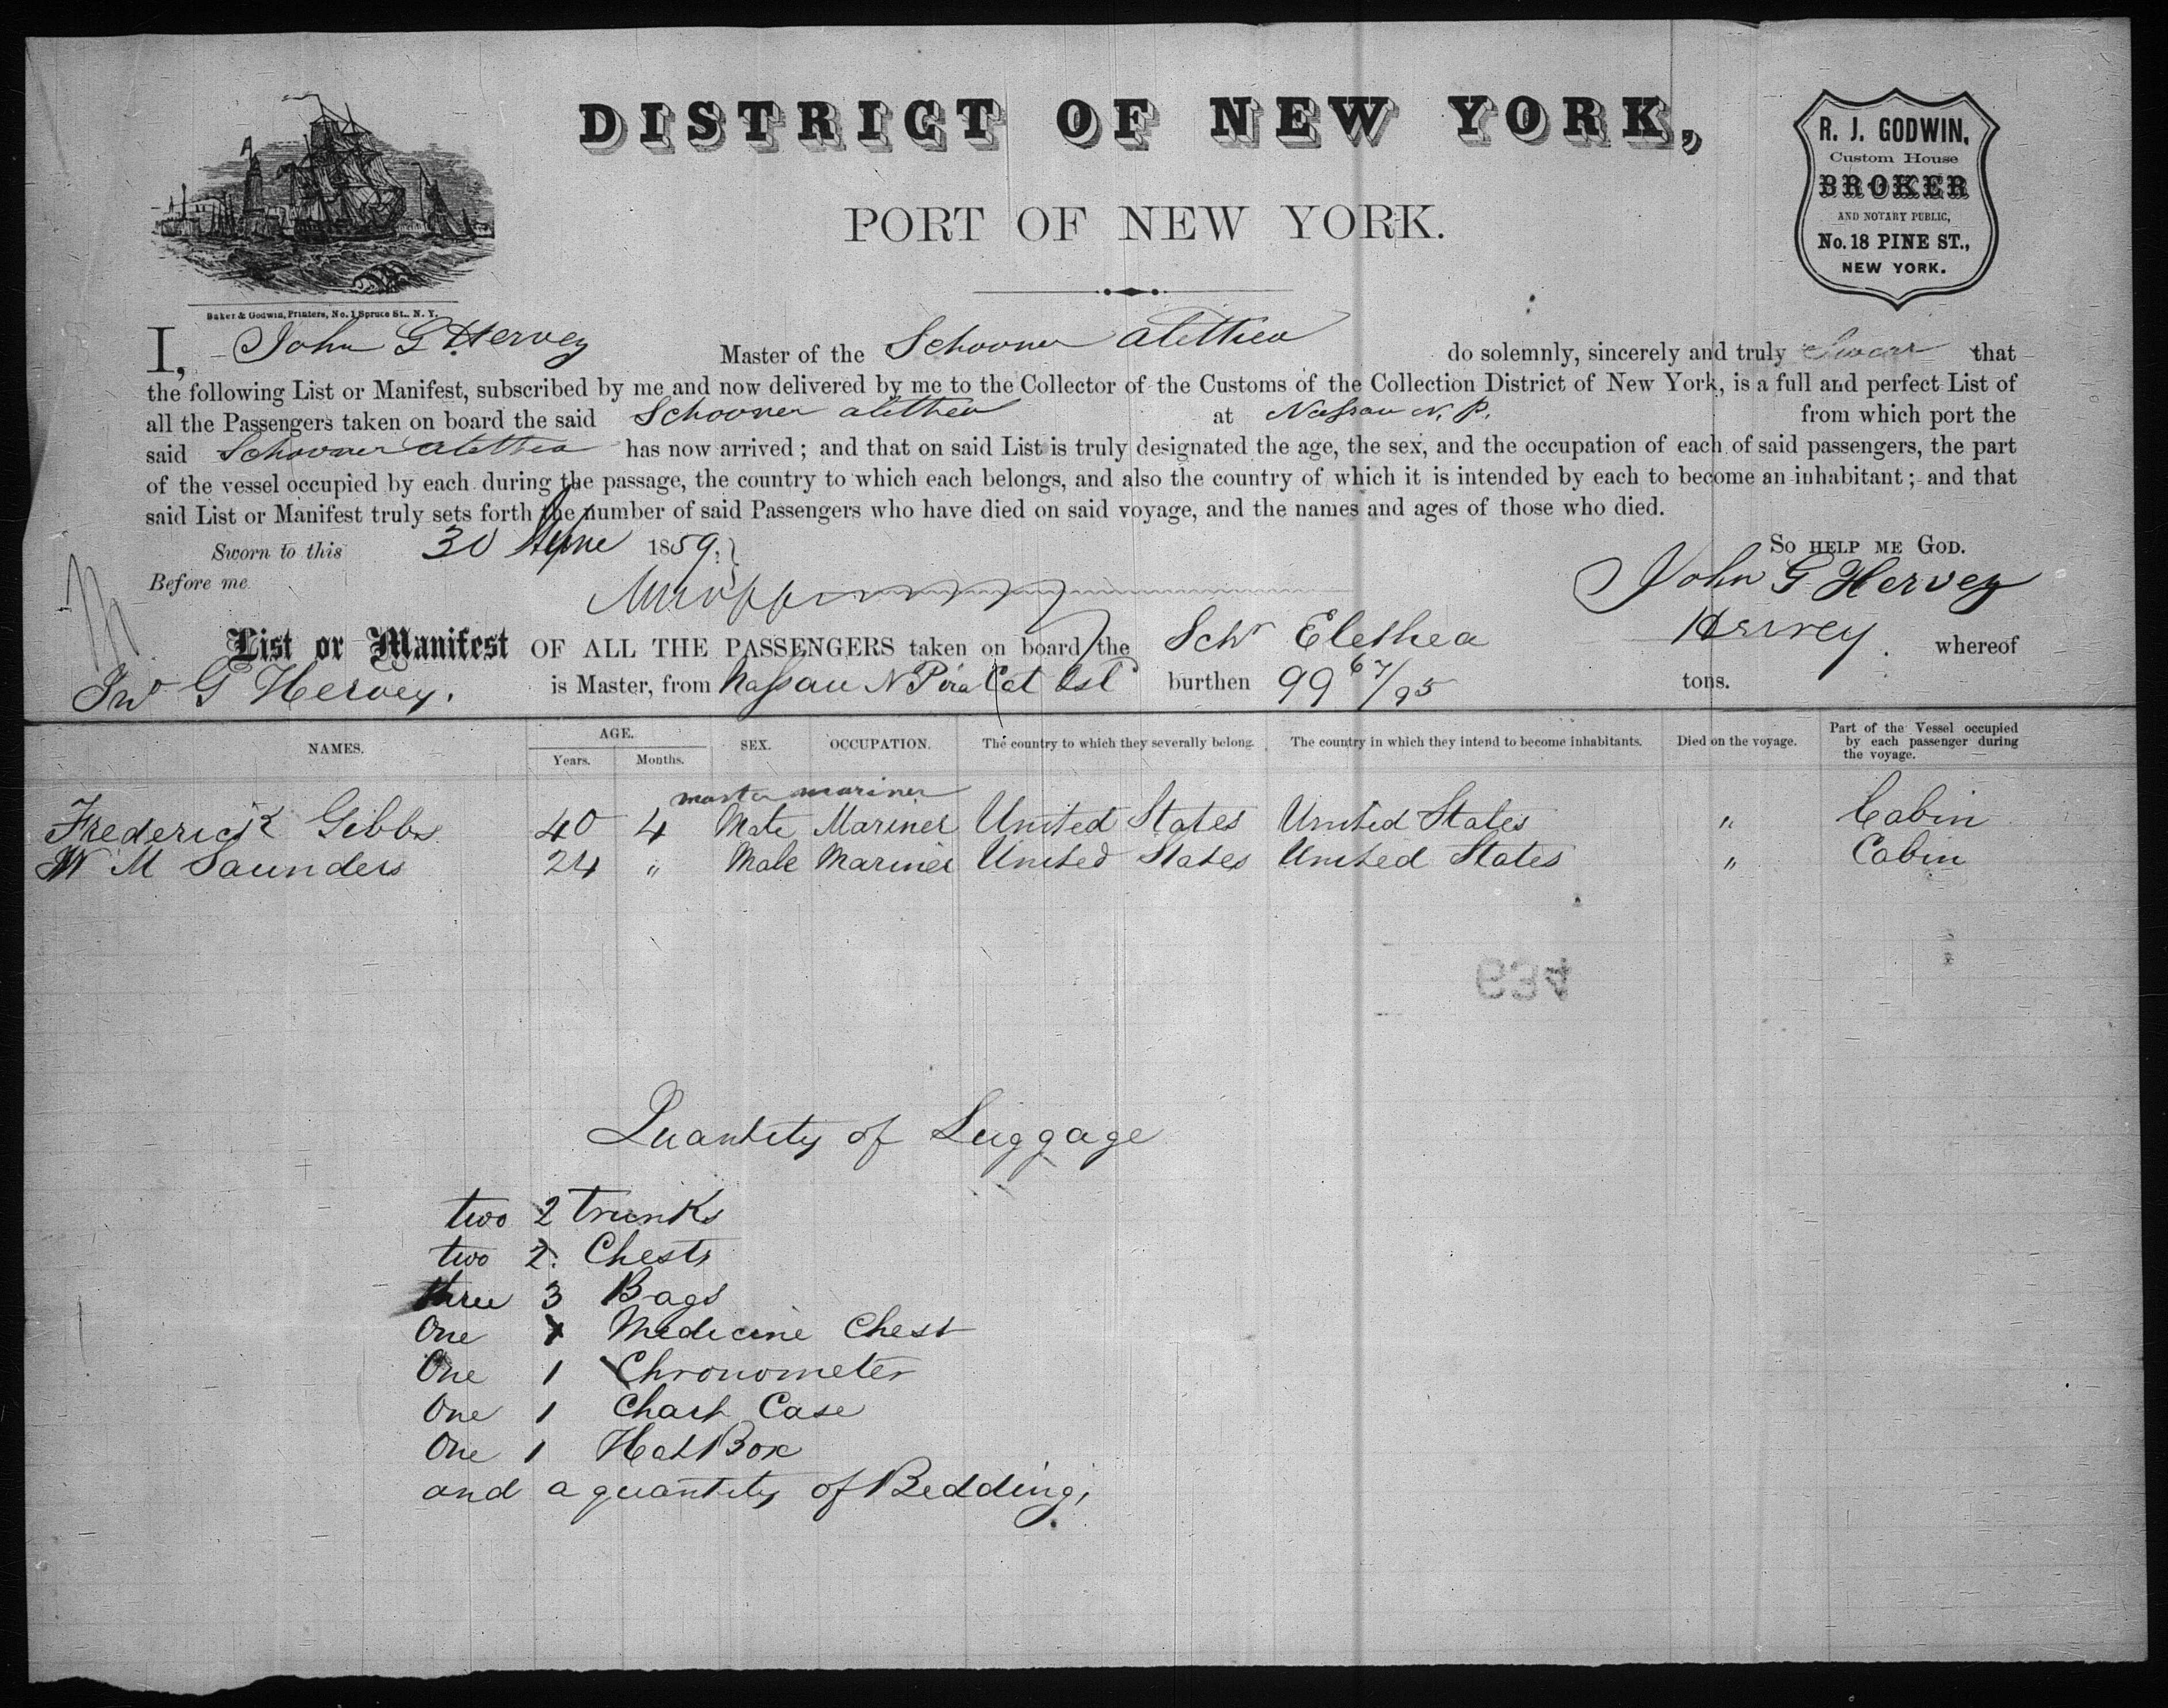 DISTRICT OF NEW YORK,
PORT OF NEW YORK.
R. J. GODWIN,
Custom House
BROKER
AND NOTARY PUBLIC,
No. 18 PINE ST.,
NEW YORK.
Baker & Godwin, Printers, No. 1 Spruce St., N. Y.
I, John G. Hervey Master of the Schooner Alethea do solemnly, sincerely and truly Swear that
the following List or Manifest, subscribed by me and now delivered by me to the Collector of the Customs of the Collection District of New York, is a full and perfect List of
all the Passengers taken on board the said Schooner alethea at Nassau N. P. from which port the
said Schooner Alethea has now arrived; and that on said List is truly designated the age, the sex, and the occupation of each of said passengers, the part
of the vessel occupied by each during the passage, the country to which each belongs, and also the country of which it is intended by each to become an inhabitant; and that
said List or Manifest truly sets forth the number of said Passengers who have died on said voyage, and the names and ages of those who died.
Sworn to this 30 1859. SO HELP ME GOD.
Before me. John G Hervey
List or Manifest OF ALL THE PASSENGERS taken on board the Schr Elethea Hervey whereof
Jno G Hervey. is Master, from Nassau N P via Cat Isl burthen 99 67/95 tons.
NAMES. AGE. Years. Months. SEX. OCCUPATION. The country to which they severally belong. The country in which they intend to become inhabitants. Died on the voyage. Part of the Vessel occupied by each passenger during the voyage.
master mariner
Frederick Gibbs 40 4 Male Mariner United States United States " Cabin
W M Saunders 24 " Male Mariner United States United States " Cabin
634
Quantity of Luggage
two 2 trunks
two 2. Chests
three 3 Bags
One 1 Medicine Chest
One 1 Chronometer
One 1 Chart Case
One 1 Hat Box
and a quantity of Bedding,